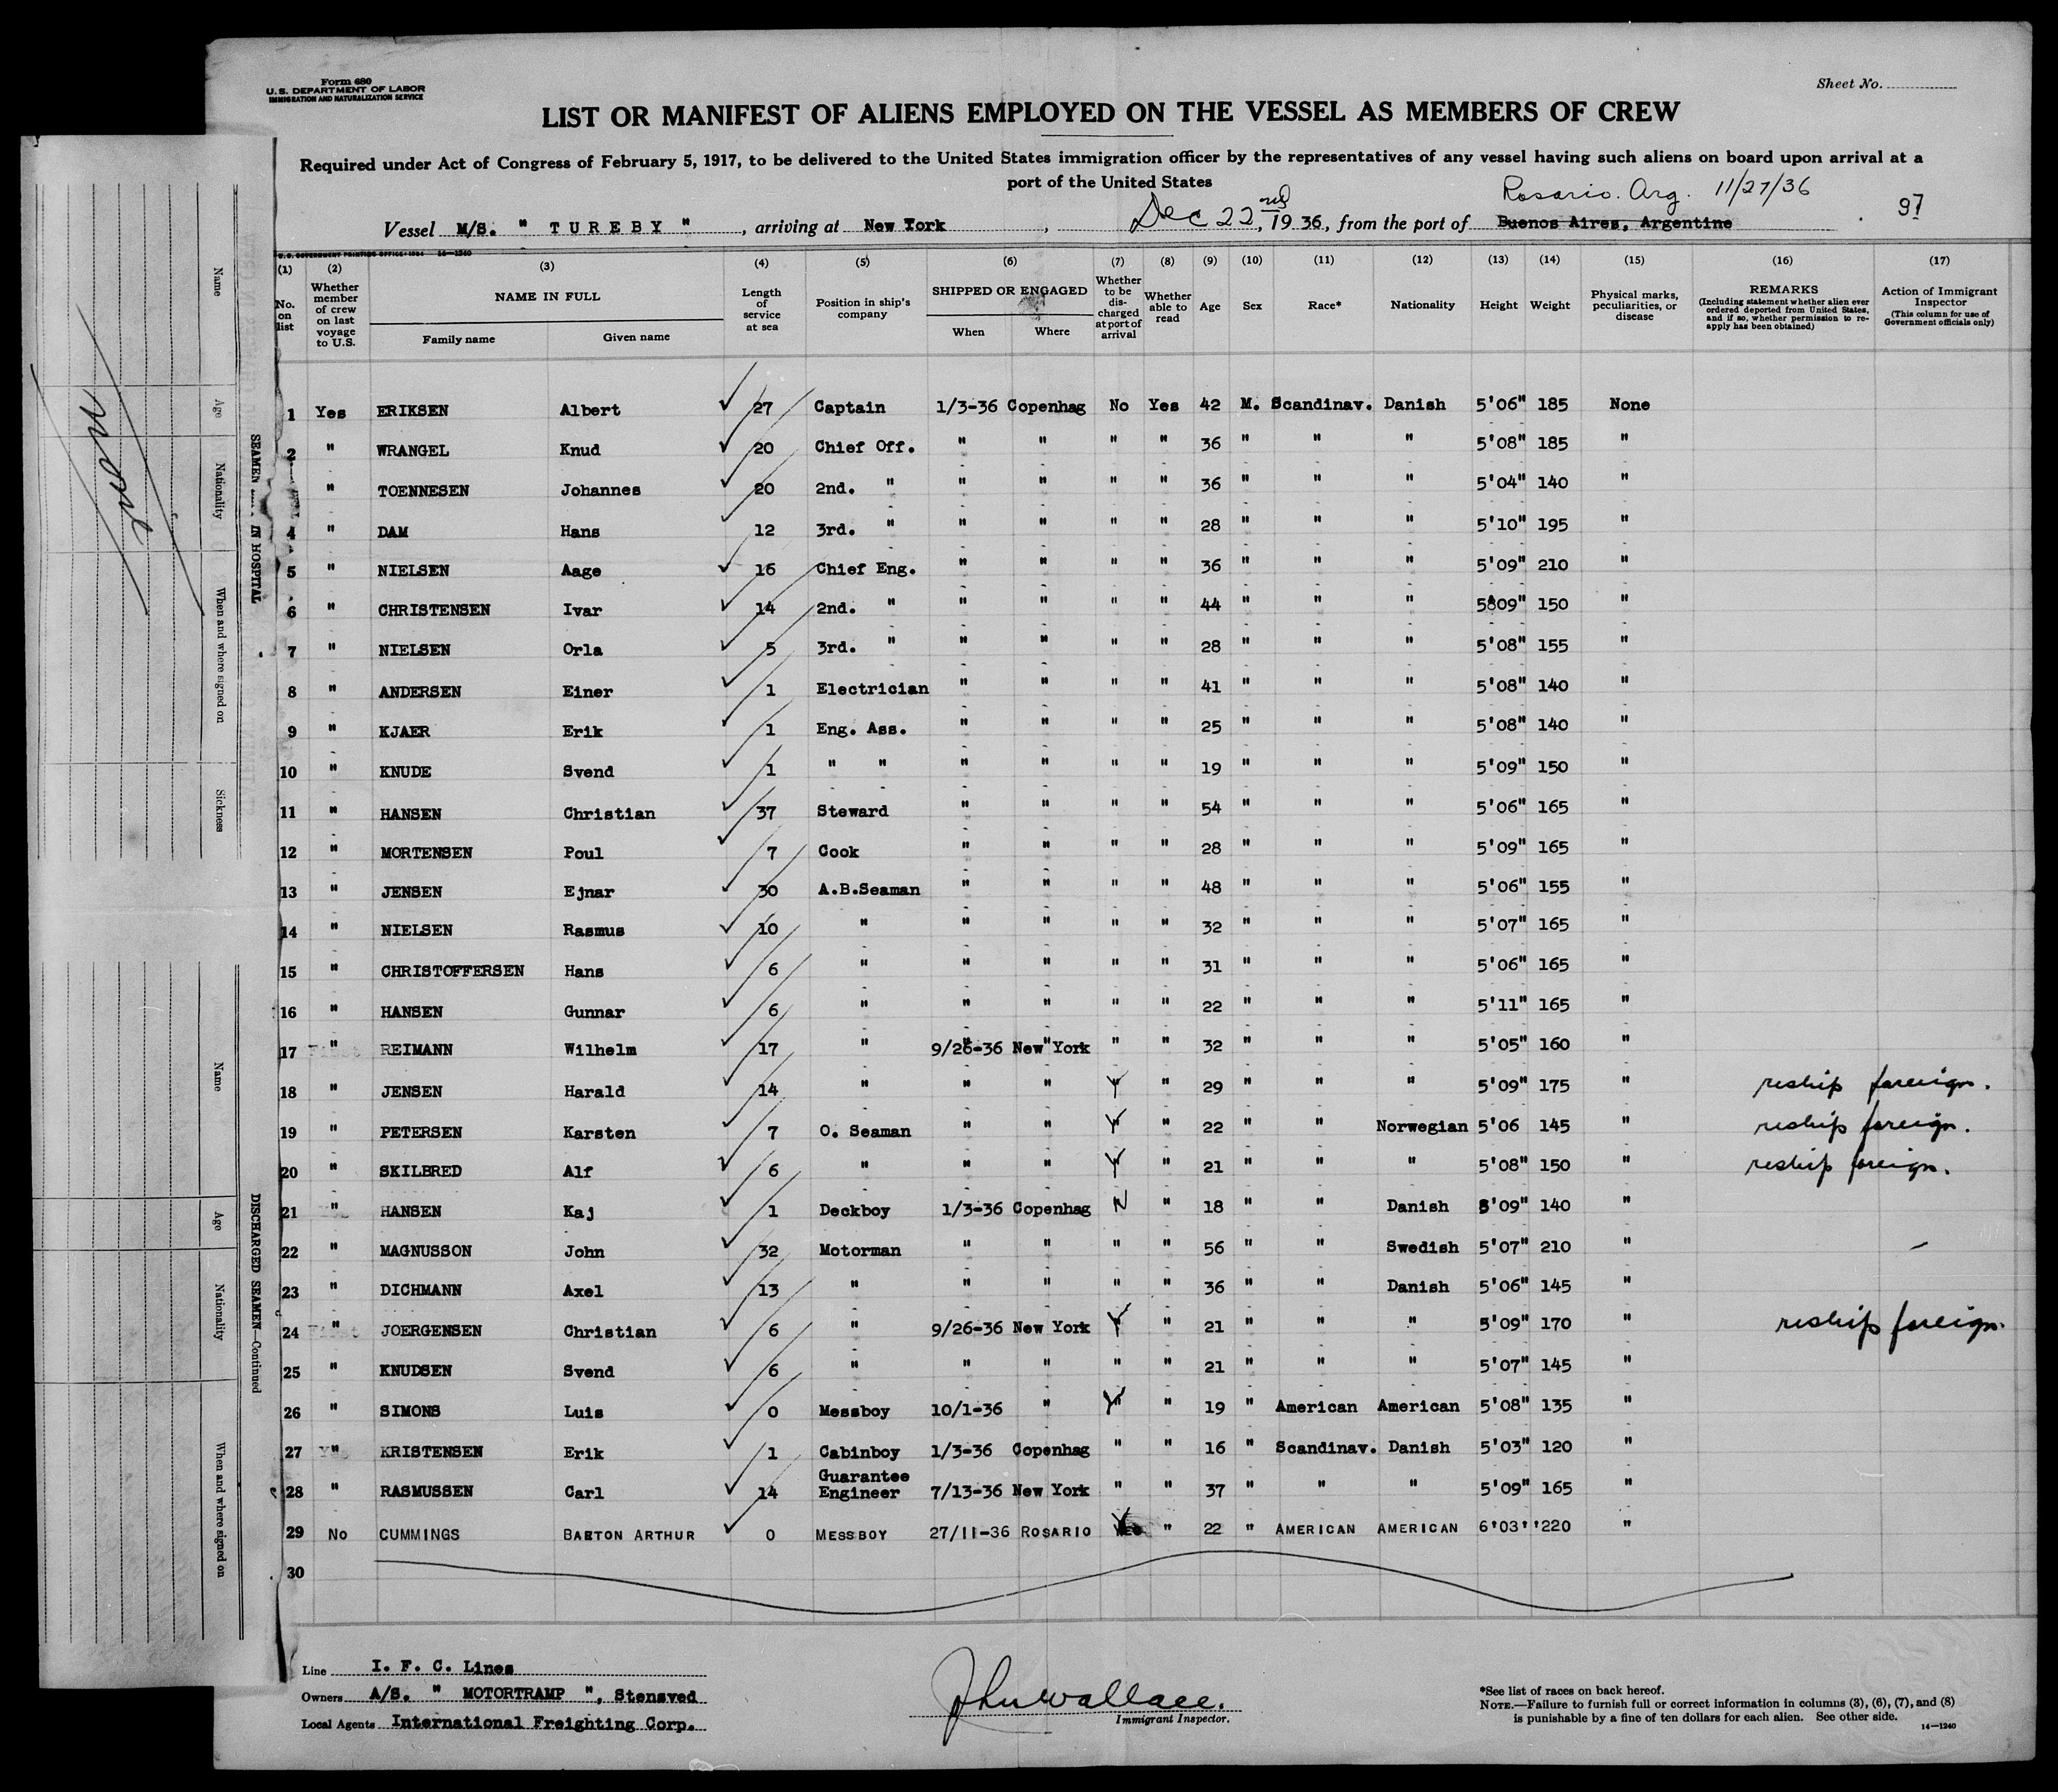 Form 680
U. S. DEPARTMENT OF LABOR
IMMIGRATION AND NATURALIZATION SERVICE
Sheet No.
LIST OR MANIFEST OF ALIENS EMPLOYED ON THE VESSEL AS MEMBERS OF CREW
Required under Act of Congress of February 5, 1917, to be delivered to the United States immigration officer by the representatives of any vessel having such aliens on board upon arrival at a
port of the United States
Rosario. Arg. 11/27/36
97
Vessel M/S. " TUREBY ", arriving at New York, Dec 22nd, 1936, from the port of Buenos Aires, Argentine
U. S. GOVERNMENT PRINTING OFFICE: 1934 14—1240
(1) (2) (3) (4) (5) (6) (7) (8) (9) (10) (11) (12) (13) (14) (15) (16) (17)
No. on list
Whether member of crew on last voyage to U.S.
NAME IN FULL
Family name
Given name
Length of service at sea
Position in ship's company
SHIPPED OR ENGAGED
When
Where
Whether to be discharged at port of arrival
Whether able to read
Age
Sex
Race*
Nationality
Height
Weight
Physical marks, peculiarities, or disease
REMARKS
(Including statement whether alien ever ordered deported from United States, and if so, whether permission to reapply has been obtained)
Action of Immigrant Inspector
(This column for use of Government officials only)
1 Yes ERIKSEN Albert 27 Captain 1/3-36 Copenhag No Yes 42 M. Scandinav. Danish 5'06" 185 None
2 " WRANGEL Knud 20 Chief Off. " " " " 36 " " " 5'08" 185 "
" TOENNESEN Johannes 20 2nd. " " " " " 36 " " " 5'04" 140 "
4 " DAM Hans 12 3rd. " " " " " 28 " " " 5'10" 195 "
5 " NIELSEN Aage 16 Chief Eng. " " " " 36 " " " 5'09" 210 "
6 " CHRISTENSEN Ivar 14 2nd. " " " " " 44 " " " 5'09" 150 "
7 " NIELSEN Orla 5 3rd. " " " " " 28 " " " 5'08" 155 "
8 " ANDERSEN Einer 1 Electrician " " " " 41 " " " 5'08" 140 "
9 " KJAER Erik 1 Eng. Ass. " " " " 25 " " " 5'08" 140 "
10 " KNUDE Svend 1 " " " " " " 19 " " " 5'09" 150 "
11 " HANSEN Christian 37 Steward " " " " 54 " " " 5'06" 165 "
12 " MORTENSEN Poul 7 Cook " " " " 28 " " " 5'09" 165 "
13 " JENSEN Ejnar 30 A.B.Seaman " " " " 48 " " " 5'06" 155 "
14 " NIELSEN Rasmus 10 " " " " " 32 " " " 5'07" 165 "
15 " CHRISTOFFERSEN Hans 6 " " " " " 31 " " " 5'06" 165 "
16 " HANSEN Gunnar 6 " " " " " 22 " " " 5'11" 165 "
17 " REIMANN Wilhelm 17 " 9/26-36 New York " " 32 " " " 5'05" 160 "
18 " JENSEN Harald 14 " " " Y " 29 " " " 5'09" 175 " reship foreign.
19 " PETERSEN Karsten 7 O. Seaman " " Y " 22 " " Norwegian 5'06 145 " reship foreign.
20 " SKILBRED Alf 6 " " " Y " 21 " " " 5'08" 150 " reship foreign.
21 " HANSEN Kaj 1 Deckboy 1/3-36 Copenhag N " 18 " " Danish 5'09" 140 "
22 " MAGNUSSON John 32 Motorman " " " " 56 " " Swedish 5'07" 210 " –
23 " DICHMANN Axel 13 " " " " " 36 " " Danish 5'06" 145 "
24 " JOERGENSEN Christian 6 " 9/26-36 New York Y " 21 " " " 5'09" 170 " reship foreign.
25 " KNUDSEN Svend 6 " " " " " 21 " " " 5'07" 145 "
26 " SIMONS Luis 0 Messboy 10/1-36 " Y " 19 " American American 5'08" 135 "
27 " KRISTENSEN Erik 1 Cabinboy 1/3-36 Copenhag " " 16 " Scandinav. Danish 5'03" 120 "
28 " RASMUSSEN Carl 14 Guarantee Engineer 7/13-36 New York " " 37 " " " 5'09" 165 "
29 No CUMMINGS BARTON ARTHUR 0 MESSBOY 27/11-36 ROSARIO Y " 22 " AMERICAN AMERICAN 6'03'' 220 "
30
Line I. F. C. Lines
Owners A/S. " MOTORTRAMP ", Stensved
Local Agents International Freighting Corp.
John Wallace.
Immigrant Inspector.
*See list of races on back hereof.
NOTE.—Failure to furnish full or correct information in columns (3), (6), (7), and (8)
is punishable by a fine of ten dollars for each alien. See other side.
14—1240
Name
Age
Nationality
When and where signed on
Sickness
None
SEAMEN IN HOSPITAL
Name
Age
Nationality
When and where signed on
DISCHARGED SEAMEN—Continued